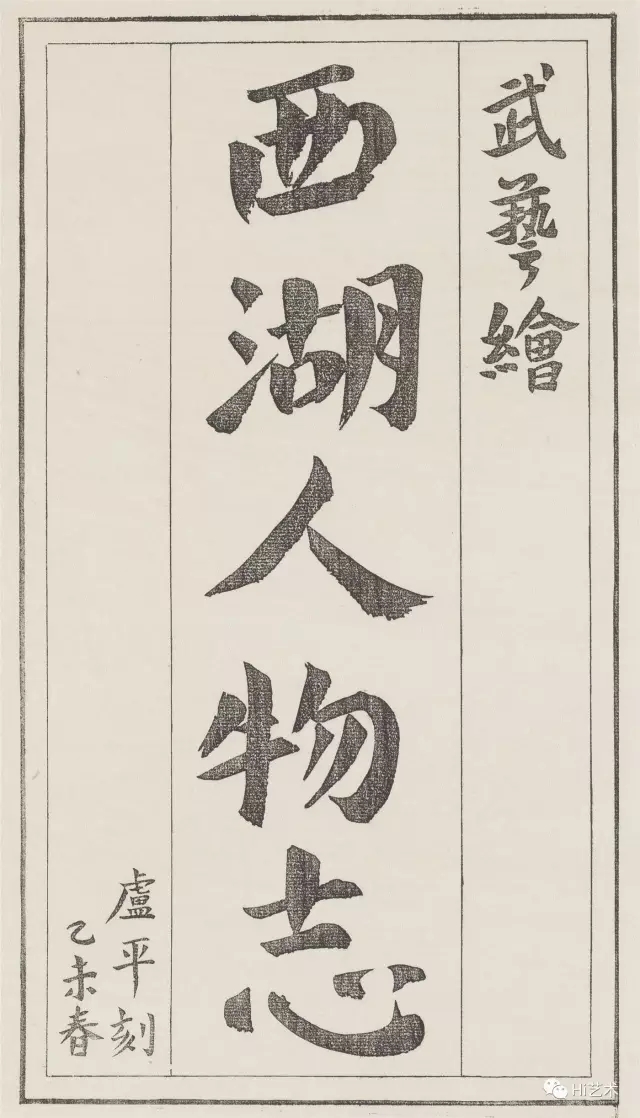 武藝繪
西湖人物志
盧平刻
乙未春
Hi艺术